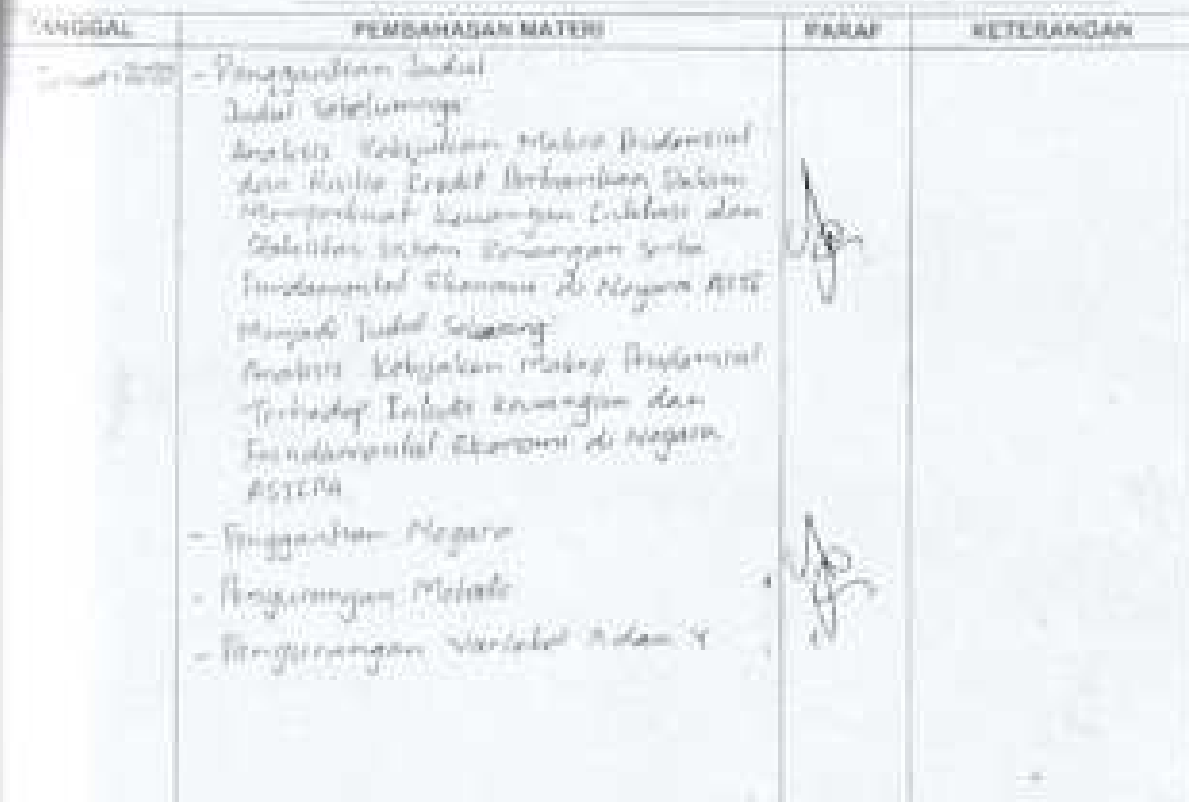 TANGGAL PEMBAHASAN MATERI PARAF KETERANGAN
- Penggantian Judul
Judul Sebelumnya
Analisis Kebijakan Makro Prudensial
dan Risiko Credit Perbankan Dalam
Memperkuat Keuangan Inklusi dan
Stabilitas Sistem Keuangan Serta
Fundamental Ekonomi di Negara
Menjadi Judul Sekarang
Analisis Kebijakan Makro Prudensial
Terhadap Inklusi Keuangan dan
Fundamental Ekonomi di Negara
- Penggantian Negara
- Pengurangan Metode
- Pengurangan Variabel X dan Y